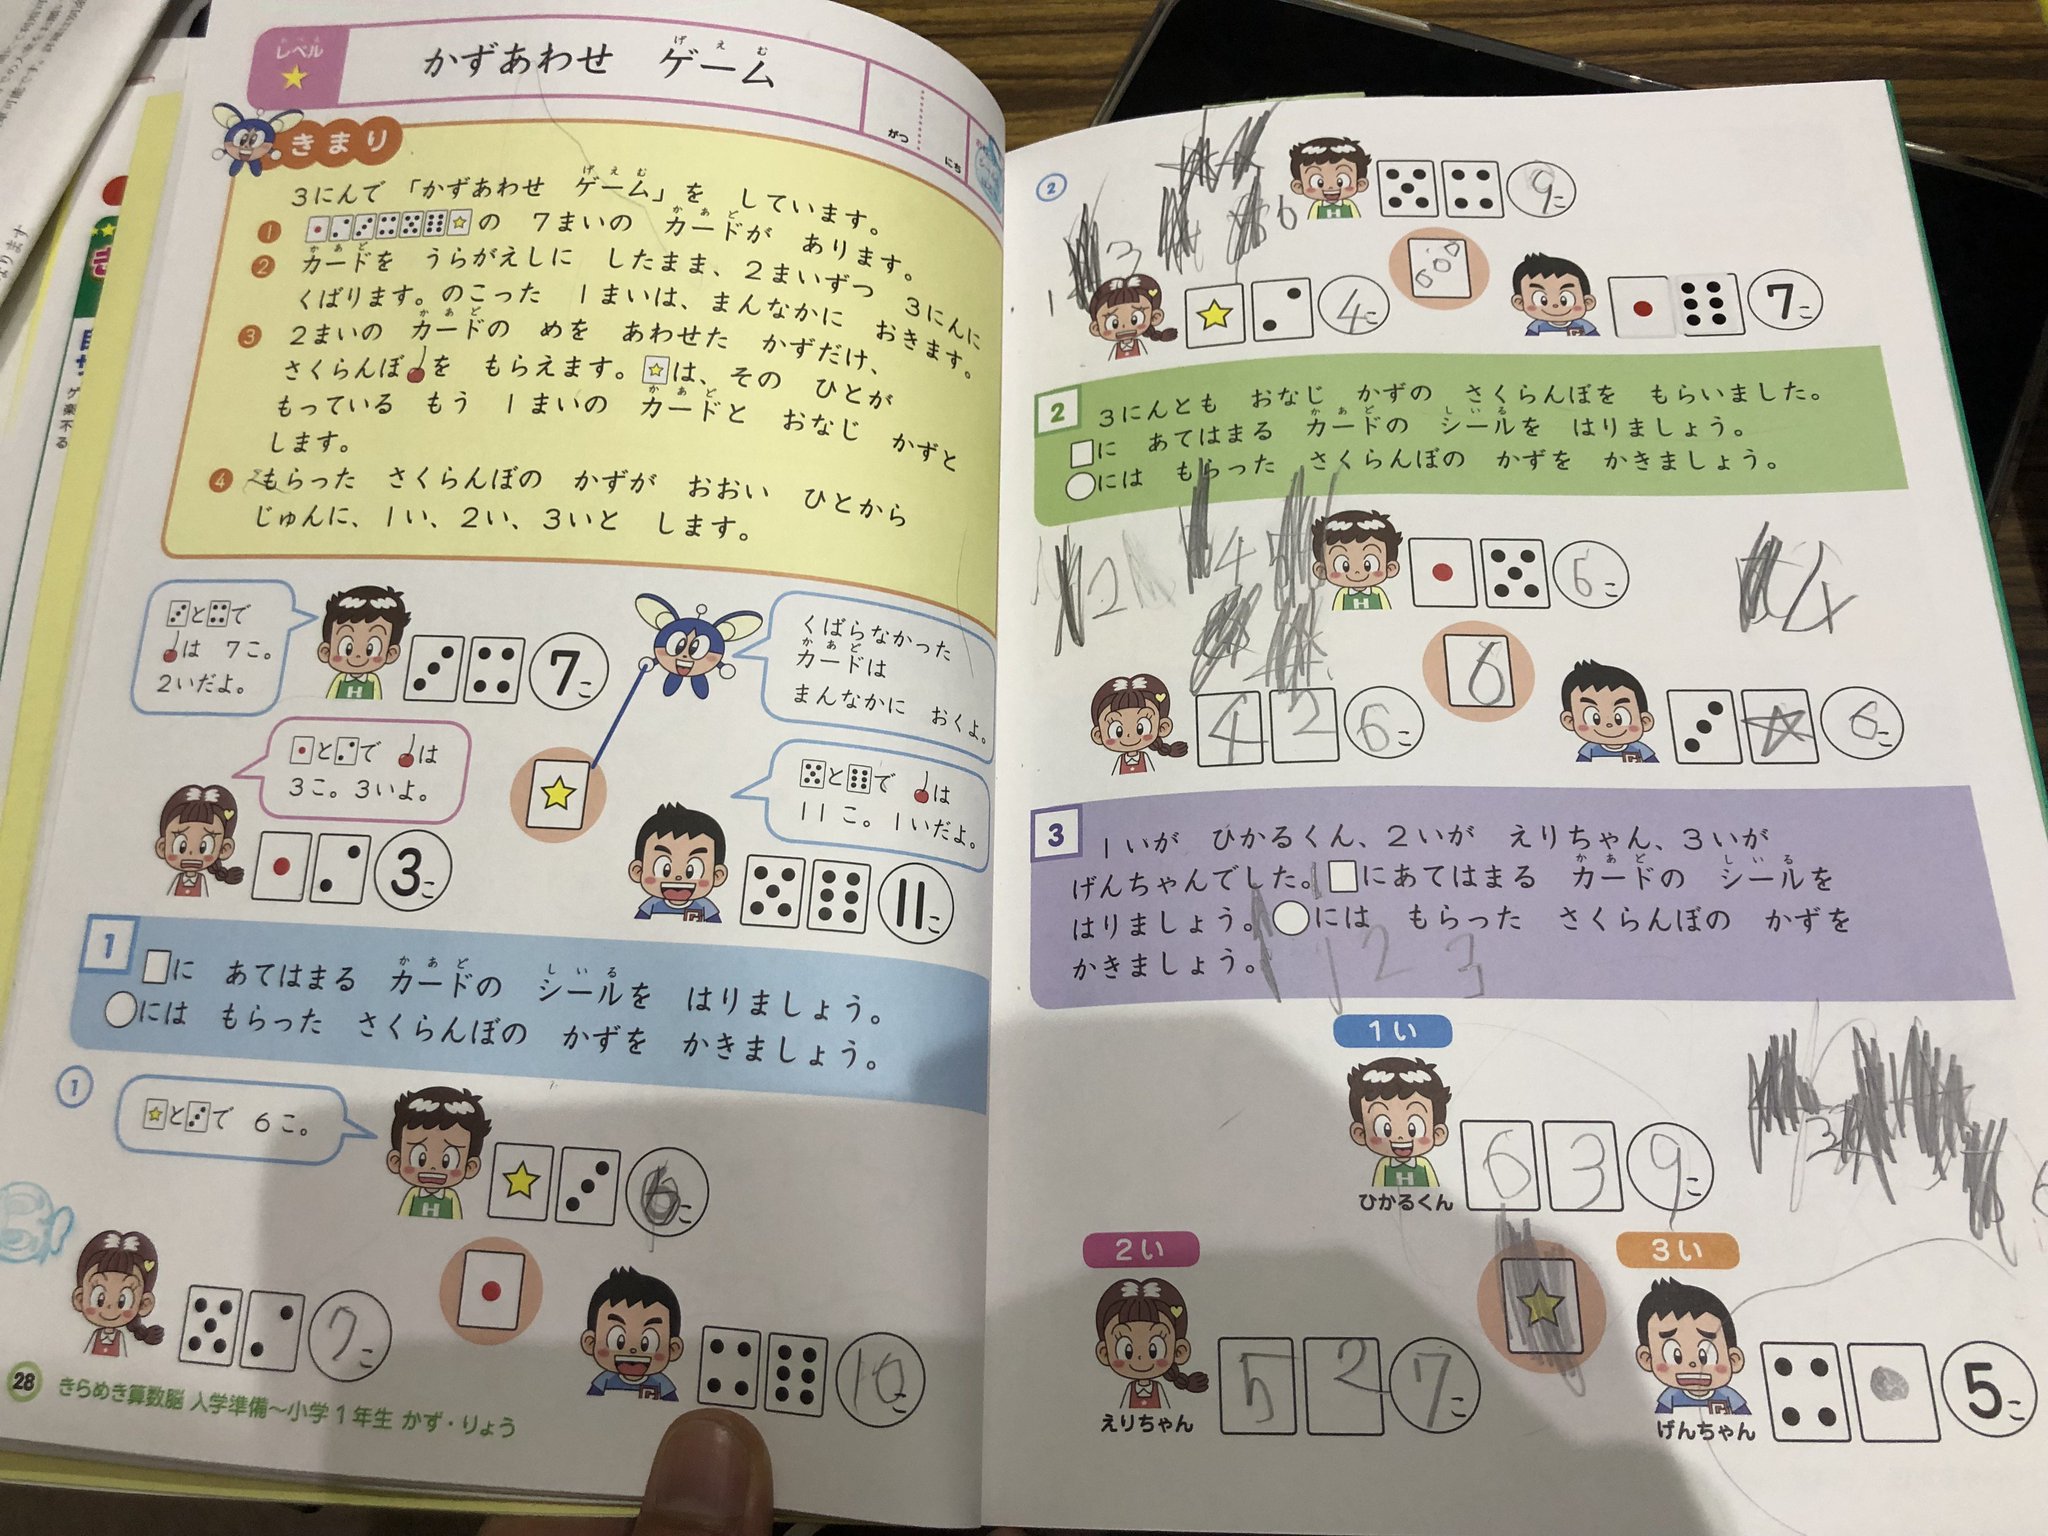 レベル
かずあわせ ゲーム
げえむ
がつ
にち
きまり
3にんで「かずあわせ ゲーム」を しています。
げえむ
1 の 7まいの カードが あります。
かあど
2 カードを うらがえしに したまま、2まいずつ 3にんに
かあど
くばります。のこった 1まいは、まんなかに おきます。
3 2まいの カードの めを あわせた かずだけ、
かあど
さくらんぼを もらえます。は、その ひとが
もっている もう 1まいの カードと おなじ かずと
かあど
します。
4 もらった さくらんぼの かずが おおい ひとから
じゅんに、1い、2い、3いと します。
とで
は 7こ。
2いだよ。
7こ
くばらなかった
カードは
かあど
まんなかに おくよ。
とで は
3こ。3いよ。
3こ
とで は
11こ。1いだよ。
11こ
1 に あてはまる カードの シールを はりましょう。
かあど しいる
には もらった さくらんぼの かずを かきましょう。
1
とで 6こ。
6こ
7こ
10こ
28 きらめき算数脳 入学準備〜小学1年生 かず・りょう
2
9こ
3
6
4こ
7こ
2 3にんとも おなじ かずの さくらんぼを もらいました。
に あてはまる カードの シールを はりましょう。
かあど しいる
には もらった さくらんぼの かずを かきましょう。
2
4
6こ
4
6
4 2 6こ
6こ
3 1いが ひかるくん、2いが えりちゃん、3いが
げんちゃんでした。にあてはまる カードの シールを
かあど しいる
はりましょう。には もらった さくらんぼの かずを
かきましょう。
1 2 3
1い
ひかるくん
6 3 9こ
2い
えりちゃん
5 2 7こ
3い
げんちゃん
5こ